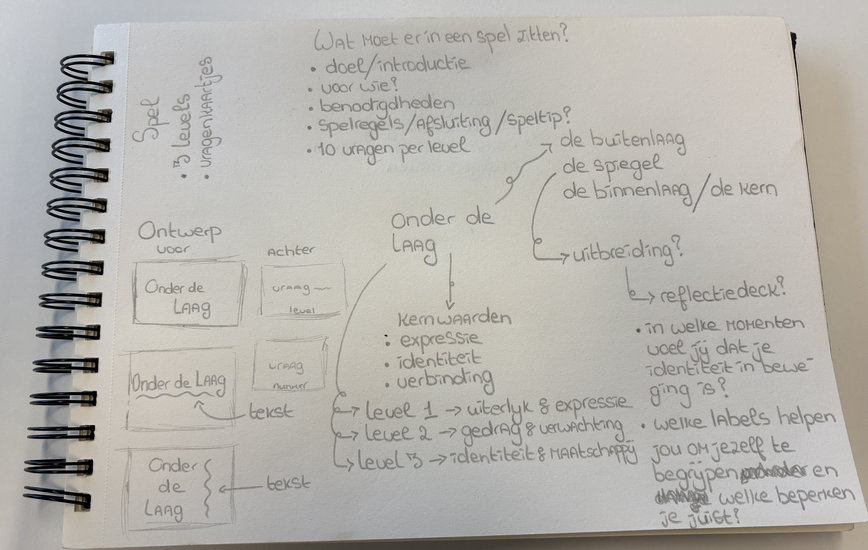 Wat moet er in een spel zitten?
• doel/introductie
• voor wie?
• benodigdheden
• spelregels/afsluiting/speltip?
• 10 vragen per level
Spel
• 3 levels
• vragenkaartjes
de buitenlaag
de spiegel
de binnenlaag/de kern
Onder de
Laag
uitbreiding?
reflectiedeck?
• in welke momenten
voel jij dat je
identiteit in bewe-
ging is?
• welke labels helpen
jou om jezelf te
begrijpen en
welke beperken
je juist?
kernwaarden
• expressie
• identiteit
• verbinding
level 1 → uiterlyk & expressie
level 2 → gedrag & verwachting
level 3 → identiteit & maatschappy
Ontwerp
voor
Achter
Onder de
Laag
vraag
level
Onder de Laag
tekst
vraag
nummer
Onder
de
Laag
tekst